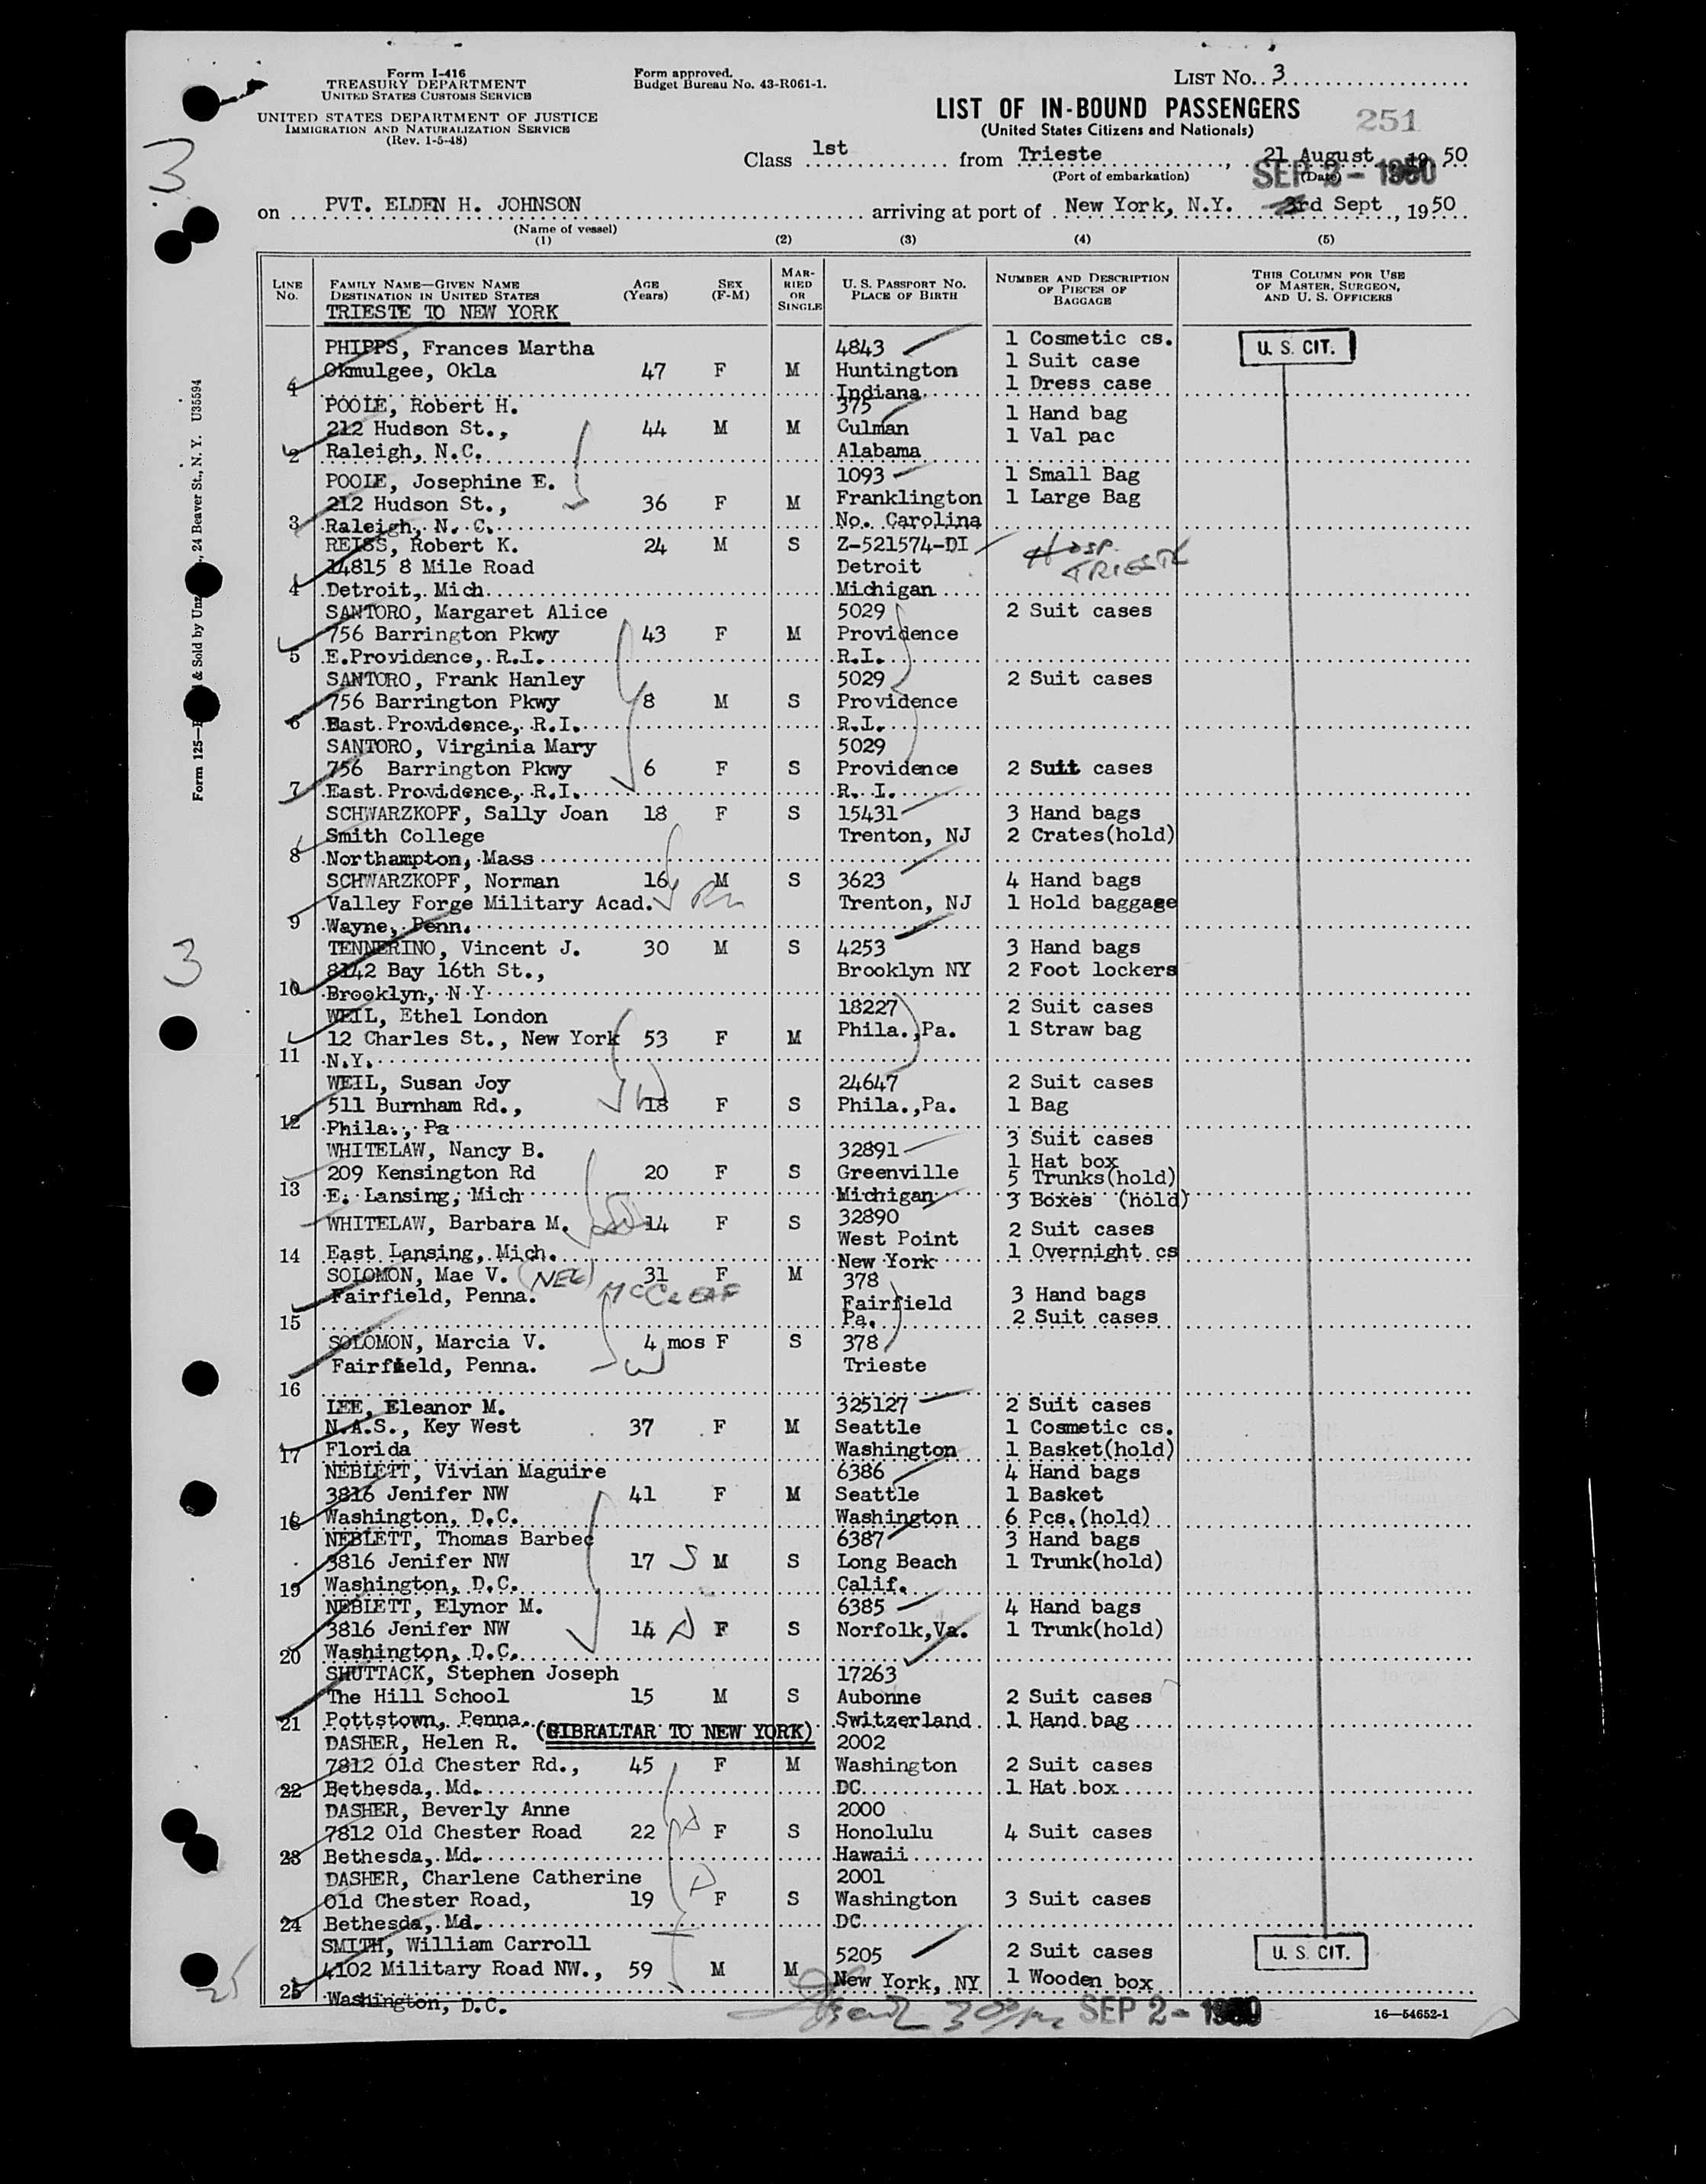 Form I-416
TREASURY DEPARTMENT
UNITED STATES CUSTOMS SERVICE
UNITED STATES DEPARTMENT OF JUSTICE
IMMIGRATION AND NATURALIZATION SERVICE
(Rev. 1-5-48)
Form approved.
Budget Bureau No. 43-R061-1.
LIST No. 3
LIST OF IN-BOUND PASSENGERS
(United States Citizens and Nationals)
251
Class 1st from Trieste, 21 August 19 50
(Port of embarkation) (Date)
SEP 2 - 1950
on PVT. ELDEN H. JOHNSON arriving at port of New York, N.Y. 3rd Sept, 19 50
(Name of vessel)
(1) (2) (3) (4) (5)
LINE No. FAMILY NAME—GIVEN NAME DESTINATION IN UNITED STATES AGE (Years) SEX (F-M) MARRIED OR SINGLE U. S. PASSPORT NO. PLACE OF BIRTH NUMBER AND DESCRIPTION OF PIECES OF BAGGAGE THIS COLUMN FOR USE OF MASTER, SURGEON, AND U. S. OFFICERS
TRIESTE TO NEW YORK
PHIPPS, Frances Martha 4843 1 Cosmetic cs.
U. S. CIT.
Okmulgee, Okla 47 F M Huntington 1 Suit case
1 Indiana 1 Dress case
POOLE, Robert H. 375 1 Hand bag
212 Hudson St., 44 M M Culman 1 Val pac
2 Raleigh, N.C. Alabama
POOLE, Josephine E. 1093 1 Small Bag
212 Hudson St., 36 F M Franklington 1 Large Bag
3 Raleigh, N. C. No. Carolina
REISS, Robert K. 24 M S Z-521574-DI HOSP. TRIESTE
14815 8 Mile Road Detroit
4 Detroit, Mich Michigan
SANTORO, Margaret Alice 5029 2 Suit cases
756 Barrington Pkwy 43 F M Providence
5 E.Providence, R.I. R.I.
SANTORO, Frank Hanley 5029 2 Suit cases
756 Barrington Pkwy 8 M S Providence
6 East Providence, R.I. R.I.
SANTORO, Virginia Mary 5029
756 Barrington Pkwy 6 F S Providence 2 Suit cases
7 East Providence, R.I. R. I.
SCHWARZKOPF, Sally Joan 18 F S 15431 3 Hand bags
Smith College Trenton, NJ 2 Crates(hold)
8 Northampton, Mass
SCHWARZKOPF, Norman 16 M S 3623 4 Hand bags
Valley Forge Military Acad. Trenton, NJ 1 Hold baggage
9 Wayne, Penn.
TENNERINO, Vincent J. 30 M S 4253 3 Hand bags
8142 Bay 16th St., Brooklyn NY 2 Foot lockers
10 Brooklyn, N Y
WEIL, Ethel London 18227 2 Suit cases
12 Charles St., New York 53 F M Phila.,Pa. 1 Straw bag
11 N.Y.
WEIL, Susan Joy 24647 2 Suit cases
511 Burnham Rd., 18 F S Phila.,Pa. 1 Bag
12 Phila., Pa
WHITELAW, Nancy B. 32891 3 Suit cases
1 Hat box
209 Kensington Rd 20 F S Greenville 5 Trunks(hold)
13 E. Lansing, Mich Michigan 3 Boxes (hold)
WHITELAW, Barbara M. 14 F S 32890 2 Suit cases
West Point
14 East Lansing, Mich. New York 1 Overnight cs
SOLOMON, Mae V. (NEE) McCLEAF 31 F M 378
Fairfield, Penna. Fairfield 3 Hand bags
15 Pa. 2 Suit cases
SOLOMON, Marcia V. 4 mos F S 378
Fairfield, Penna. Trieste
16
LEE, Eleanor M. 325127 2 Suit cases
N.A.S., Key West 37 F M Seattle 1 Cosmetic cs.
17 Florida Washington 1 Basket(hold)
NEBLETT, Vivian Maguire 6386 4 Hand bags
3816 Jenifer NW 41 F M Seattle 1 Basket
18 Washington, D.C. Washington 6 Pcs.(hold)
NEBLETT, Thomas Barbec 6387 3 Hand bags
3816 Jenifer NW 17 S M S Long Beach 1 Trunk(hold)
19 Washington, D.C. Calif.
NEBLETT, Elynor M. 6385 4 Hand bags
3816 Jenifer NW 14 F S Norfolk,Va. 1 Trunk(hold)
20 Washington, D.C.
SHUTTACK, Stephen Joseph 17263
The Hill School 15 M S Aubonne 2 Suit cases
21 Pottstown, Penna. Switzerland 1 Hand bag
(GIBRALTAR TO NEW YORK)
DASHER, Helen R. 2002
7812 Old Chester Rd., 45 F M Washington 2 Suit cases
22 Bethesda, Md. DC 1 Hat box
DASHER, Beverly Anne 2000
7812 Old Chester Road 22 F S Honolulu 4 Suit cases
23 Bethesda, Md. Hawaii
DASHER, Charlene Catherine 2001
Old Chester Road, 19 F S Washington 3 Suit cases
24 Bethesda, Md. DC
SMITH, William Carroll 5205 2 Suit cases
U. S. CIT.
4102 Military Road NW., 59 M M New York, NY 1 Wooden box
25 Washington, D.C.
SEP 2 - 1950
16—54652-1
3
3
25
Form 125— & Sold by Unz , 24 Beaver St., N. Y. U35594